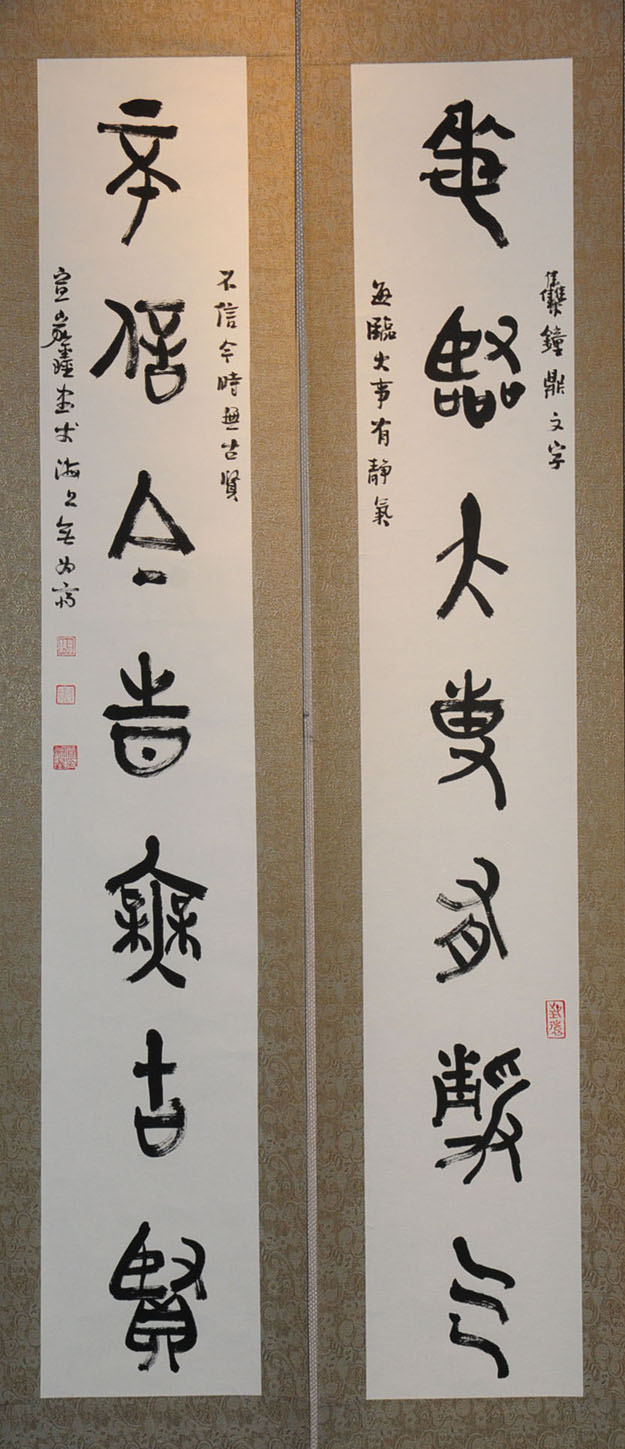 雧鐘鼎文字
每臨大事有靜氣
每臨大事有靜氣
不信今時無古賢
不信今時無古賢
宣家鑫書於海上無為齋